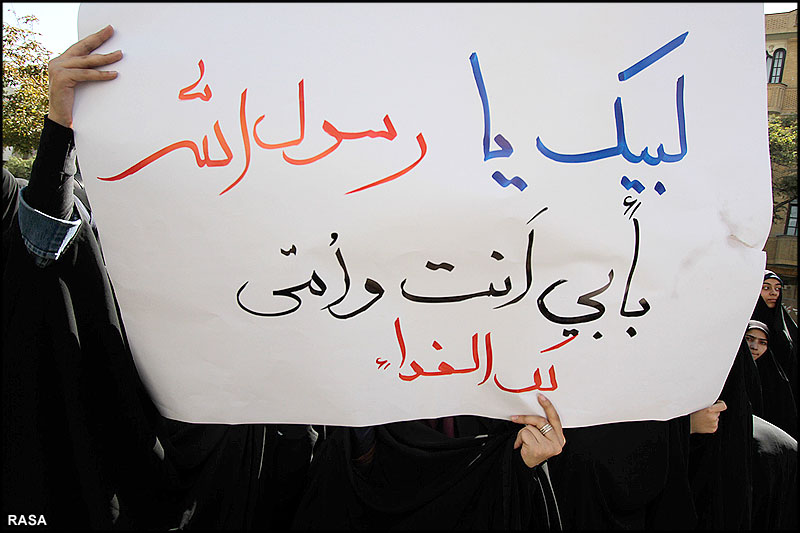 لبيك يا رسول الله
بأبي أنت وأمّى
لك الفداء
RASA